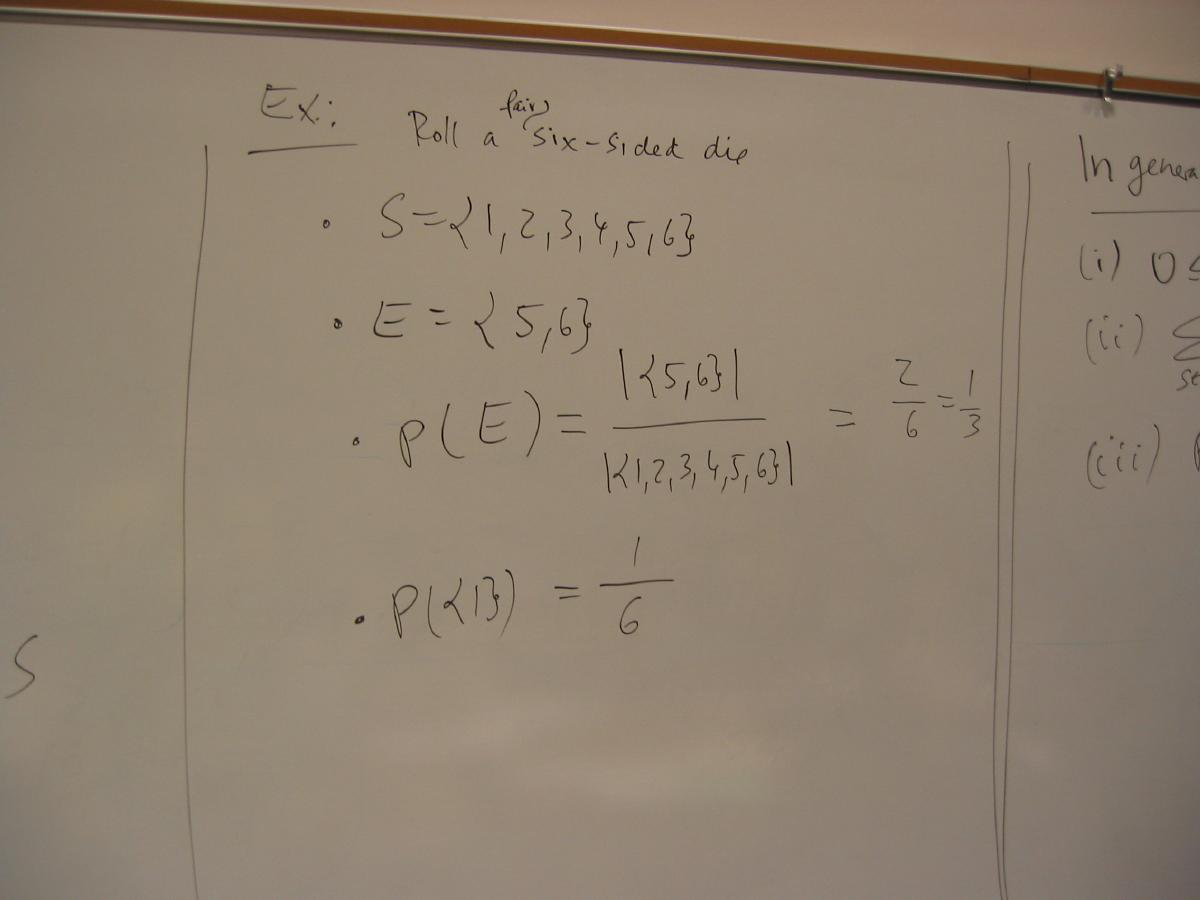 Ex: Roll a fair six-sided die
• S = {1, 2, 3, 4, 5, 6}
• E = {5, 6}
• P(E) = |{5, 6}| / |{1, 2, 3, 4, 5, 6}| = 2/6 = 1/3
• P({1}) = 1/6
S
In genera
(i) 0 ≤
(ii) Σ
(iii)